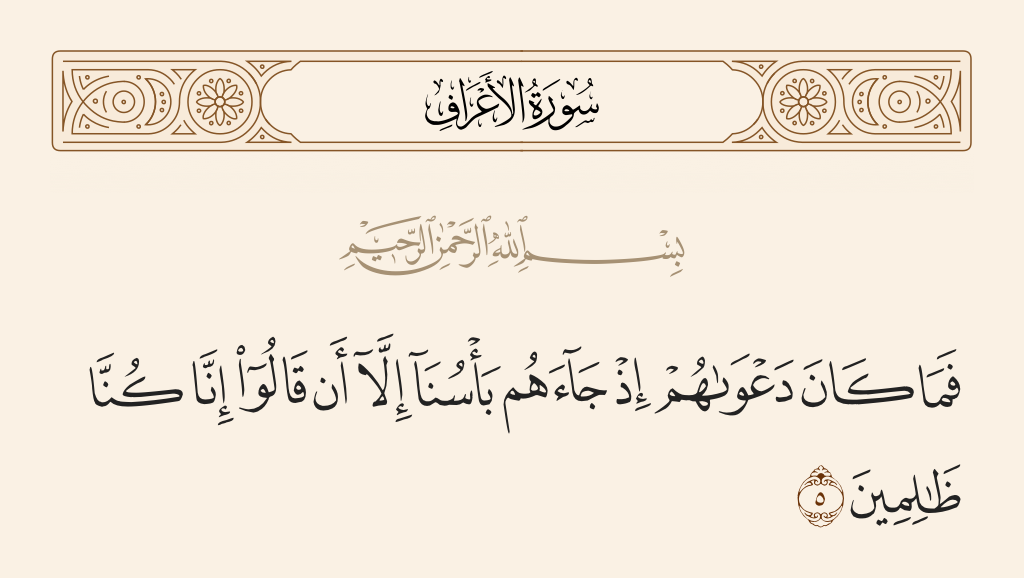 سُورَةُ الأَعْرَافِ
بِسْمِ ٱللَّهِ ٱلرَّحْمَٰنِ ٱلرَّحِيمِ
فَمَا كَانَ دَعْوَىٰهُمْ إِذْ جَآءَهُم بَأْسُنَآ إِلَّآ أَن قَالُوٓا۟ إِنَّا كُنَّا
ظَٰلِمِينَ ٥